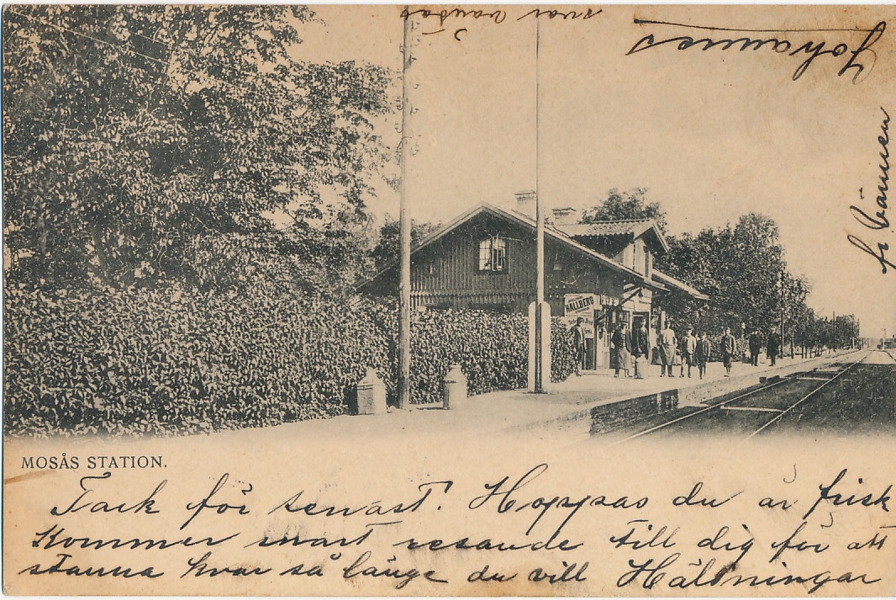 MOSÅS STATION.
HALLBERG
Tack för senast! Hoppas du är frisk
Kommer snart resande till dig för att
stanna kvar så länge du vill Hälsningar
fr vännen
Johannes
svar väntas